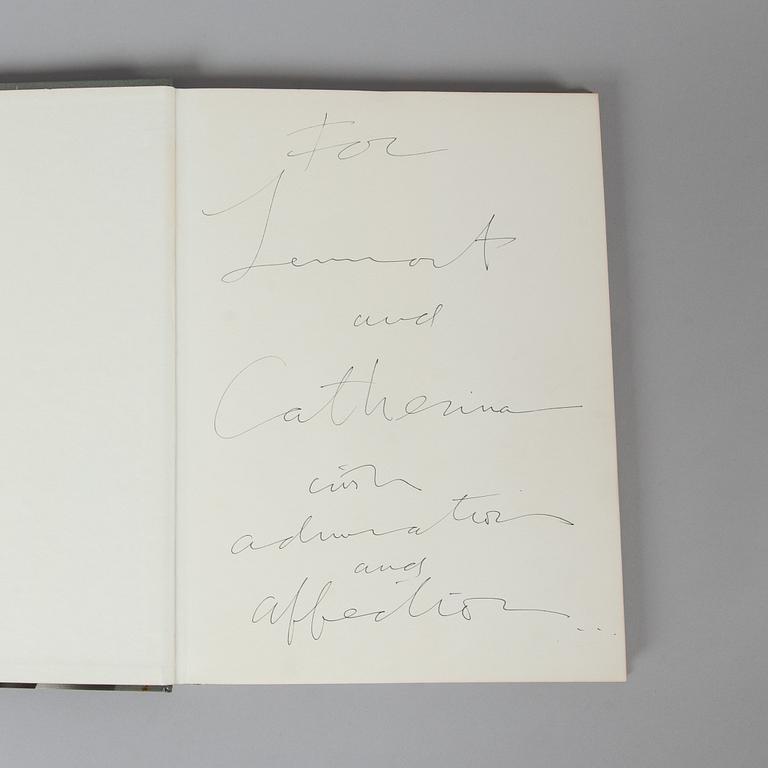 For
Lennart
and
Catherina
with
admiration
and
affection...